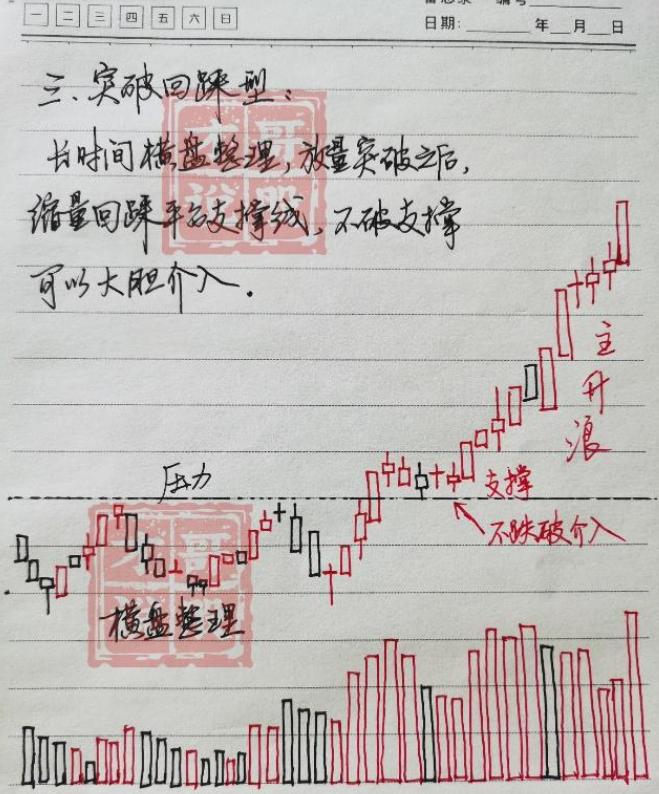 一 二 三 四 五 六 日
日期: 年 月 日
三、突破回踩型:
长时间横盘整理,放量突破之后,
缩量回踩平台支撑线,不破支撑
可以大胆介入.
主升浪
压力
支撑
不跌破介入
横盘整理